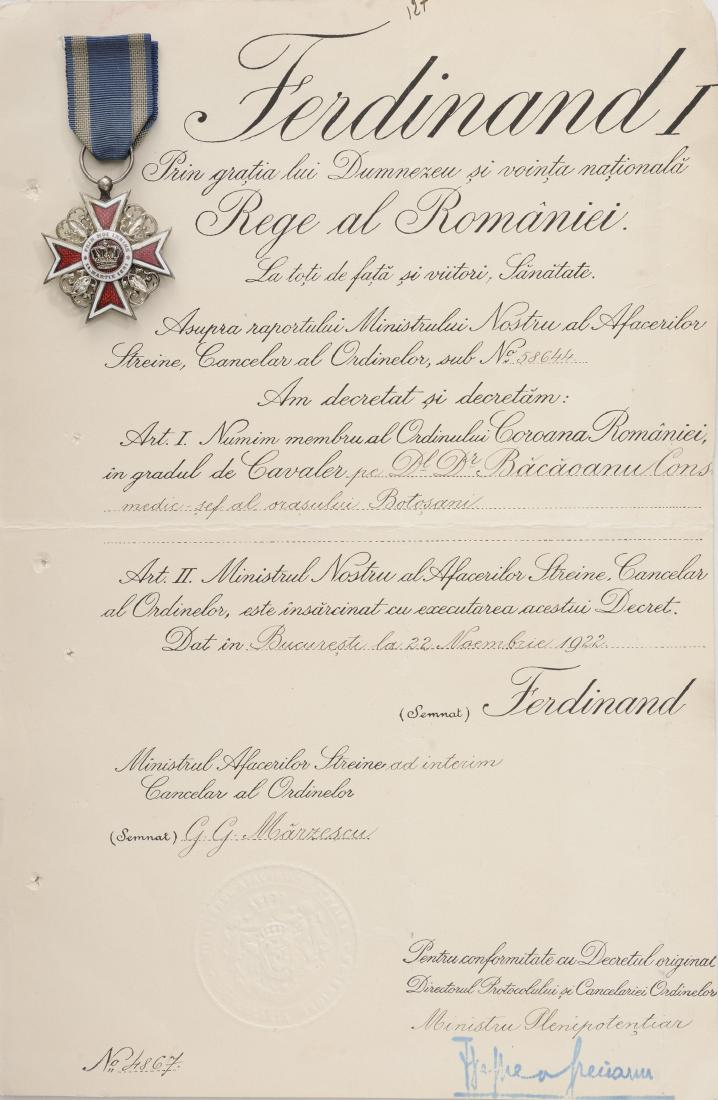 127
Ferdinand I
Prin grația lui Dumnezeu și voința națională
Rege al României.
La toți de față și viitori, Sănătate.
Asupra raportului Ministrului Nostru al Afacerilor
Streine, Cancelar al Ordinelor, sub No. 58644
Am decretat și decretăm:
Art. I. Numim membru al Ordinului Coroana României,
în gradul de Cavaler pe Dl Dr Băcăoanu Cons
medic-șef al orașului Botoșani
Art. II. Ministrul Nostru al Afacerilor Streine, Cancelar
al Ordinelor, este însărcinat cu executarea acestui Decret.
Dat în București la 22 Noembrie 1922
(Semnat) Ferdinand
Ministrul Afacerilor Streine ad interim
Cancelar al Ordinelor
(Semnat) G. G. Mârzescu
Pentru conformitate cu Decretul original
Directorul Protocolului și Cancelariei Ordinelor
Ministru Plenipotențiar
No. 4867